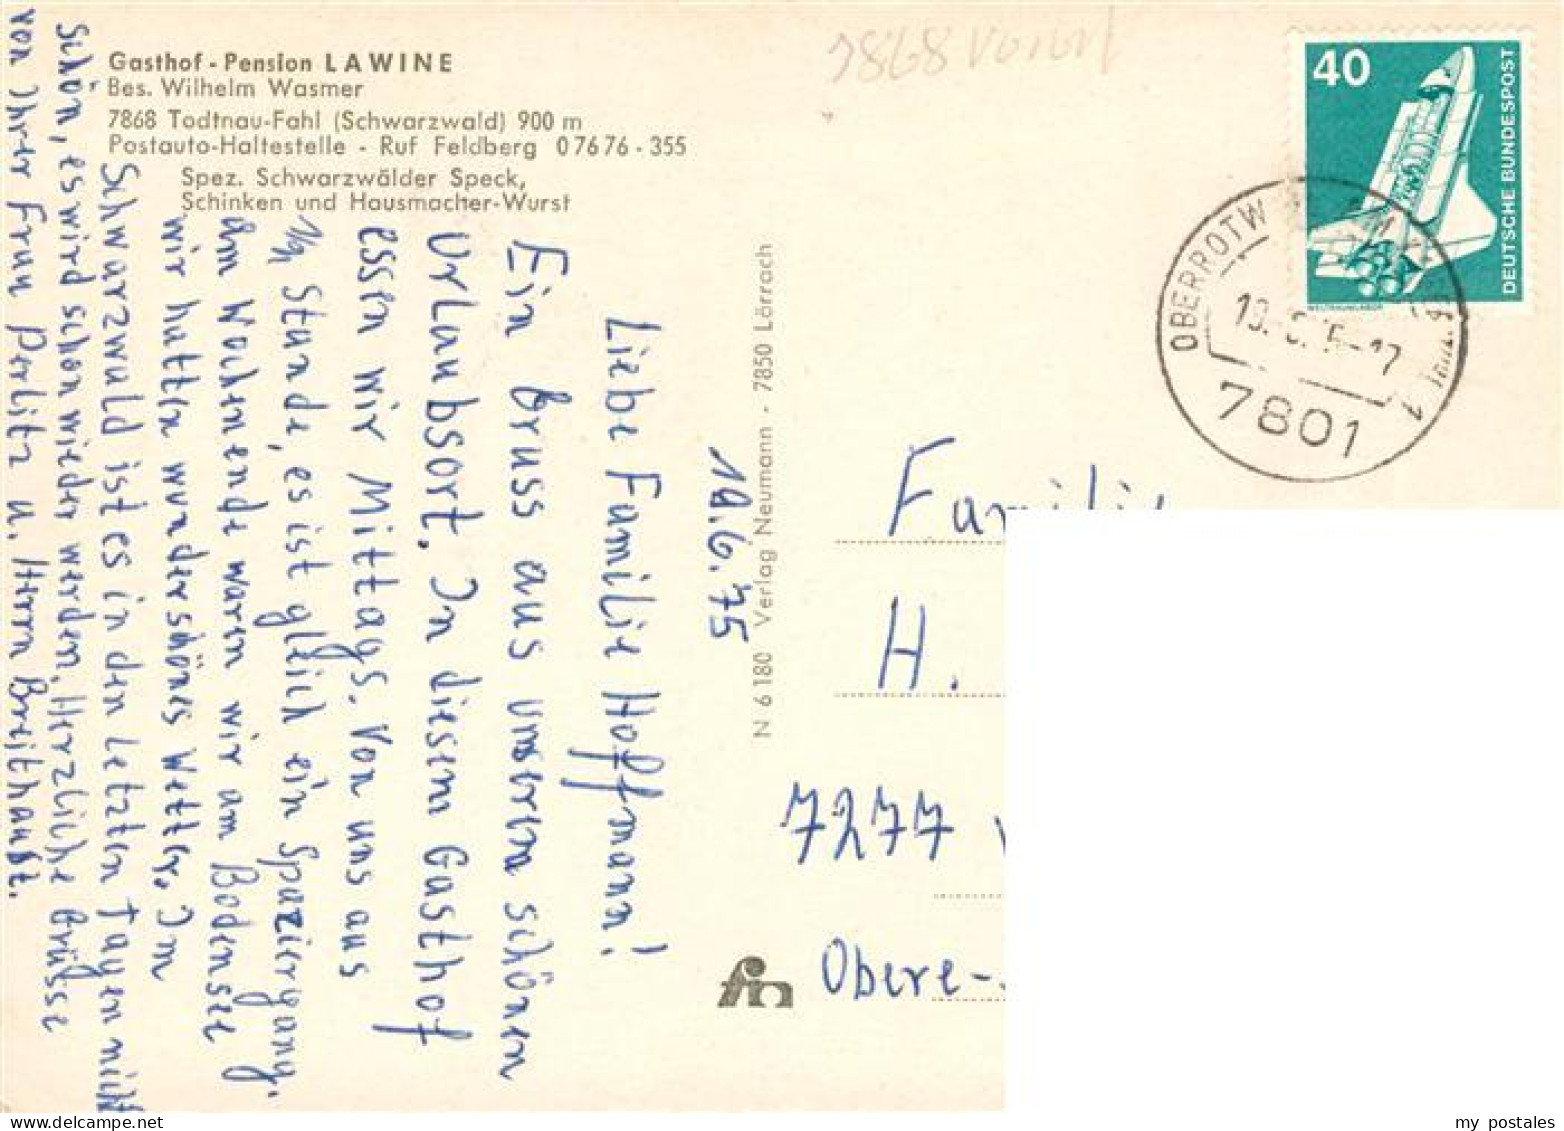 Gasthof - Pension LAWINE
Bes. Wilhelm Wasmer
7868 Todtnau-Fahl (Schwarzwald) 900 m
Postauto-Haltestelle - Ruf Feldberg 07676-355
Spez. Schwarzwälder Speck,
Schinken und Hausmacher-Wurst
19.6.75
Liebe Familie Hoffmann!
Ein Gruss aus unserem schönen
Urlaubsort. In diesem Gasthof
essen wir Mittags. Von uns aus
Stunde, es ist gleich ein Spaziergang.
Am Wochenende waren wir am Bodensee
wir hatten wunderschönes Wetter. Im
Schwarzwald ist es in den letzten Tagen nicht
schön, es wird schon wieder werden, Herzliche Grüsse
von Ihrer Frau Perlitz u. Herrn Breithaupt.
N 6180 Verlag Neumann - 7850 Lörrach
7868
40
DEUTSCHE BUNDESPOST
WELTRAUMLABOR
OBERROTW
7801
1
Familie
H.
7277
Obere-
fin
my postales